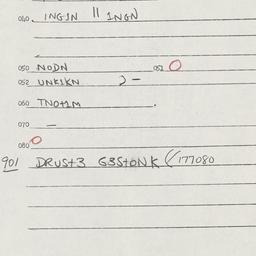 040. INGIN || INGN
050 NODN 051 O
052 UNKIKN
060 TNO+1M
070 —
080 O
901 DRUST3 G3STONK (177080